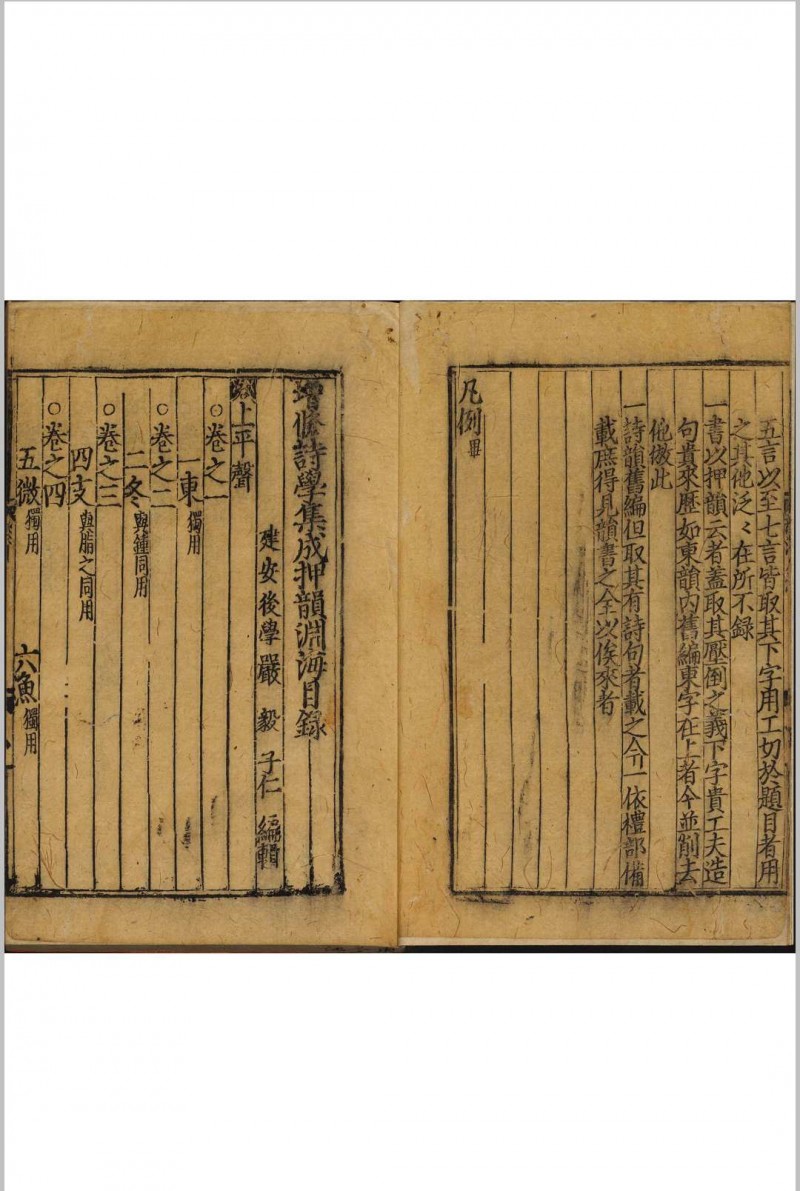 五言以至七言皆取其下字用工切於題目者用
之其他泛〻在所不錄
一書以押韻云者蓋取其壓倒之義下字貴工夫造
句貴來歷如東韻內舊編東字在上者今並削去
他倣此
一詩韻舊編但取其有詩句者載之今一依禮部備
載庶得見韻書之全以俟來者
凡例畢
增修詩學集成押韻淵海目錄
建安後學嚴毅子仁編輯
上平聲
○卷之一
一東獨用
○卷之二
二冬與鍾同用
○卷之三
四支與脂之同用
○卷之四
五微獨用 六魚獨用